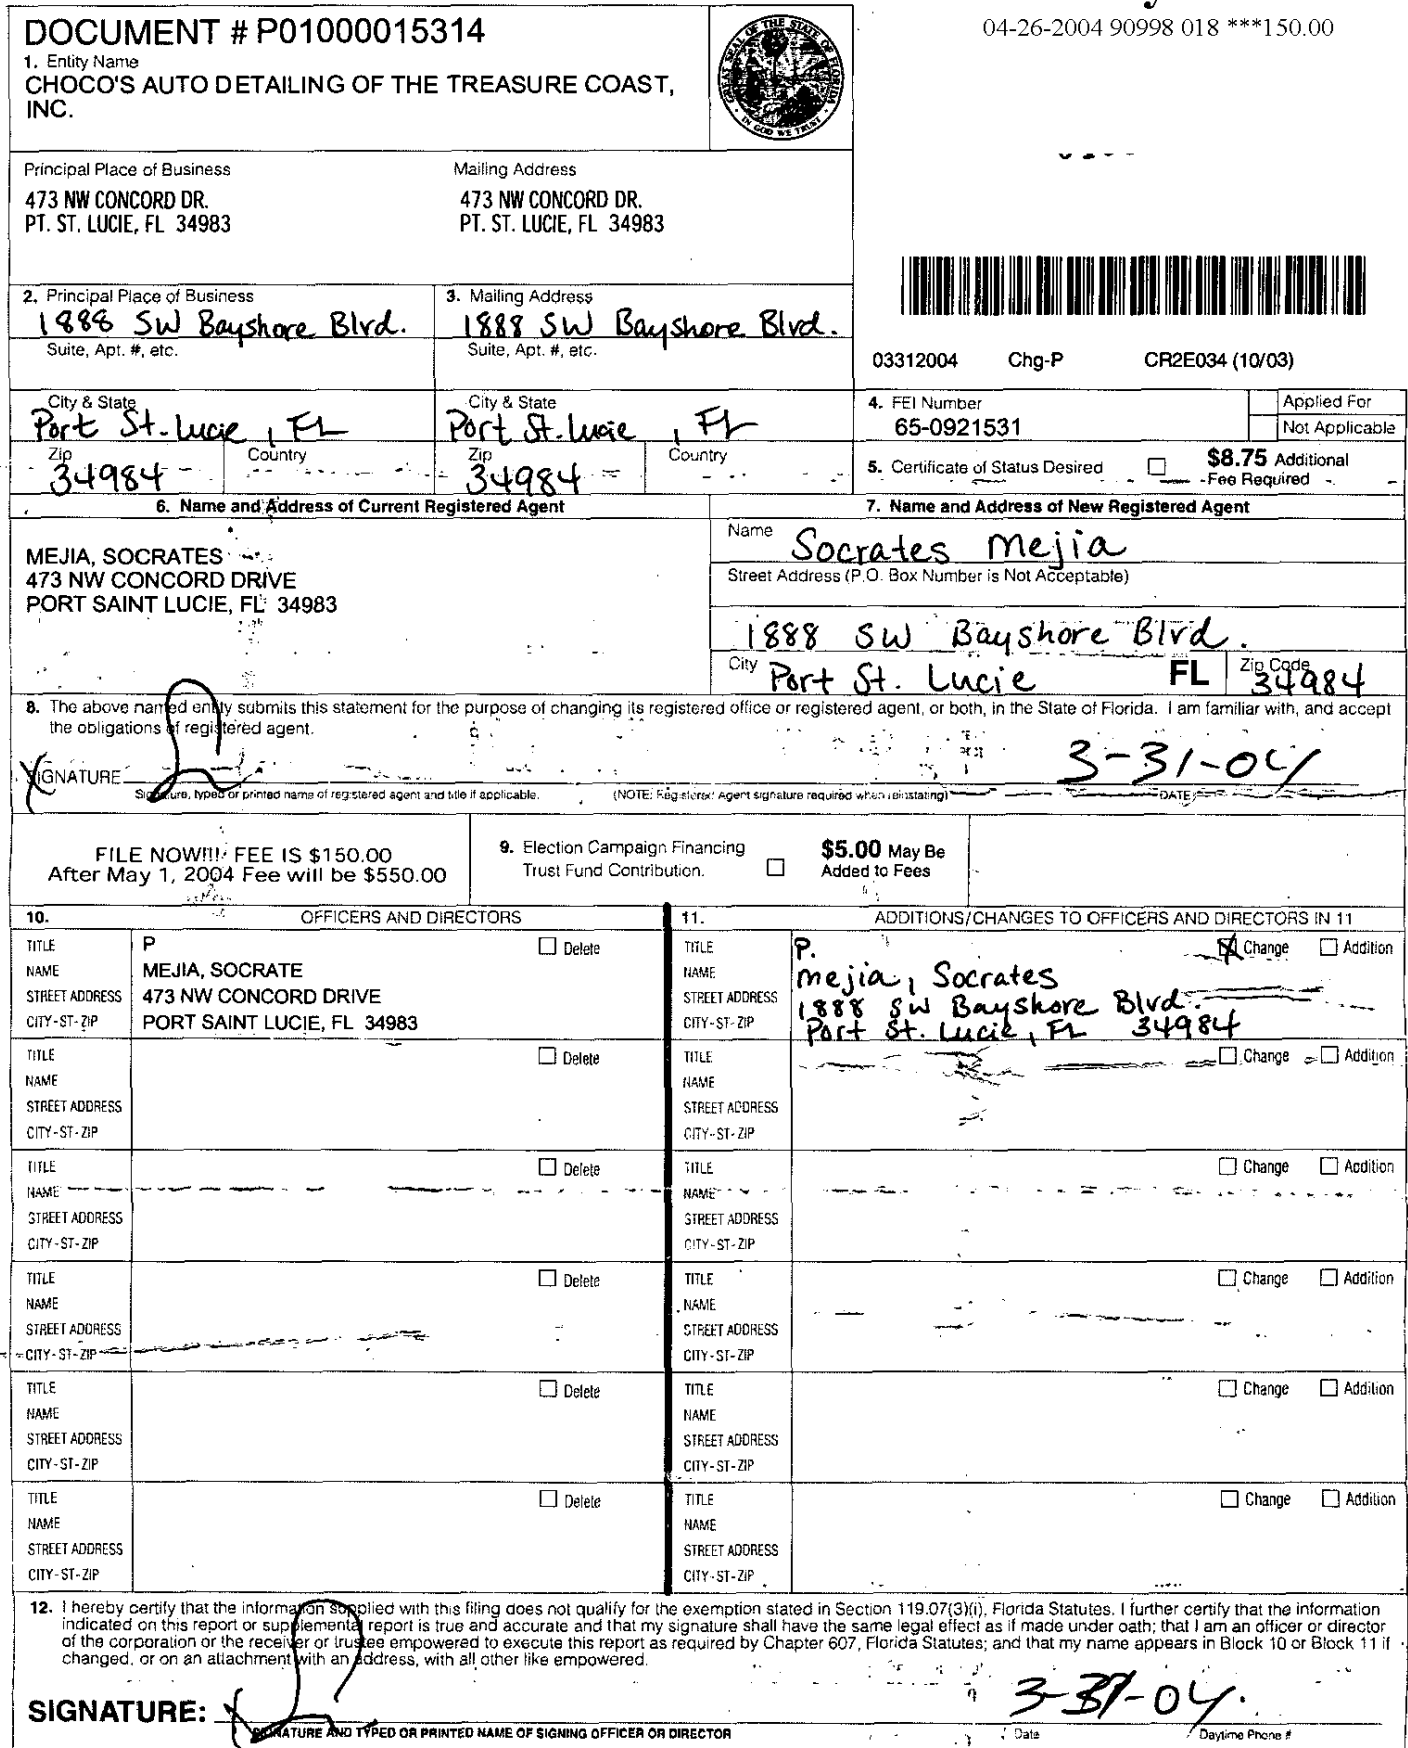 DOCUMENT # P01000015314
04-26-2004 90998 018 ***150.00
1. Entity Name
CHOCO'S AUTO DETAILING OF THE TREASURE COAST,
INC.
GREAT SEAL OF THE STATE OF FLORIDA
IN GOD WE TRUST
Principal Place of Business
473 NW CONCORD DR.
PT. ST. LUCIE, FL 34983
Mailing Address
473 NW CONCORD DR.
PT. ST. LUCIE, FL 34983
2. Principal Place of Business
1888 SW Bayshore Blvd.
Suite, Apt. #, etc.
3. Mailing Address
1888 SW Bayshore Blvd.
Suite, Apt. #, etc.
03312004 Chg-P CR2E034 (10/03)
City & State
Port St. Lucie, FL
City & State
Port St. Lucie, FL
Zip
34984
Country
Zip
34984
Country
4. FEI Number
65-0921531
Applied For
Not Applicable
5. Certificate of Status Desired
$8.75 Additional
Fee Required
6. Name and Address of Current Registered Agent
MEJIA, SOCRATES
473 NW CONCORD DRIVE
PORT SAINT LUCIE, FL 34983
7. Name and Address of New Registered Agent
Name Socrates Mejia
Street Address (P.O. Box Number is Not Acceptable)
1888 SW Bayshore Blvd.
City Port St. Lucie FL Zip Code 34984
8. The above named entity submits this statement for the purpose of changing its registered office or registered agent, or both, in the State of Florida. I am familiar with, and accept
the obligations of registered agent.
SIGNATURE 3-31-04
Signature, typed or printed name of registered agent and title if applicable. (NOTE: Registered Agent signature required when reinstating) DATE
FILE NOW!!! FEE IS $150.00
After May 1, 2004 Fee will be $550.00
9. Election Campaign Financing
Trust Fund Contribution.
$5.00 May Be
Added to Fees
10. OFFICERS AND DIRECTORS
11. ADDITIONS/CHANGES TO OFFICERS AND DIRECTORS IN 11
TITLE P Delete
NAME MEJIA, SOCRATE
STREET ADDRESS 473 NW CONCORD DRIVE
CITY-ST-ZIP PORT SAINT LUCIE, FL 34983
TITLE P. X Change Addition
NAME Mejia, Socrates
STREET ADDRESS 1888 SW Bayshore Blvd.
CITY-ST-ZIP Port St. Lucie, FL 34984
TITLE Delete
NAME
STREET ADDRESS
CITY-ST-ZIP
TITLE Change Addition
NAME
STREET ADDRESS
CITY-ST-ZIP
TITLE Delete
NAME
STREET ADDRESS
CITY-ST-ZIP
TITLE Change Addition
NAME
STREET ADDRESS
CITY-ST-ZIP
TITLE Delete
NAME
STREET ADDRESS
CITY-ST-ZIP
TITLE Change Addition
NAME
STREET ADDRESS
CITY-ST-ZIP
TITLE Delete
NAME
STREET ADDRESS
CITY-ST-ZIP
TITLE Change Addition
NAME
STREET ADDRESS
CITY-ST-ZIP
TITLE Delete
NAME
STREET ADDRESS
CITY-ST-ZIP
TITLE Change Addition
NAME
STREET ADDRESS
CITY-ST-ZIP
12. I hereby certify that the information supplied with this filing does not qualify for the exemption stated in Section 119.07(3)(i), Florida Statutes. I further certify that the information
indicated on this report or supplemental report is true and accurate and that my signature shall have the same legal effect as if made under oath; that I am an officer or director
of the corporation or the receiver or trustee empowered to execute this report as required by Chapter 607, Florida Statutes; and that my name appears in Block 10 or Block 11 if
changed, or on an attachment with an address, with all other like empowered.
SIGNATURE: X 3-31-04.
SIGNATURE AND TYPED OR PRINTED NAME OF SIGNING OFFICER OR DIRECTOR Date Daytime Phone #